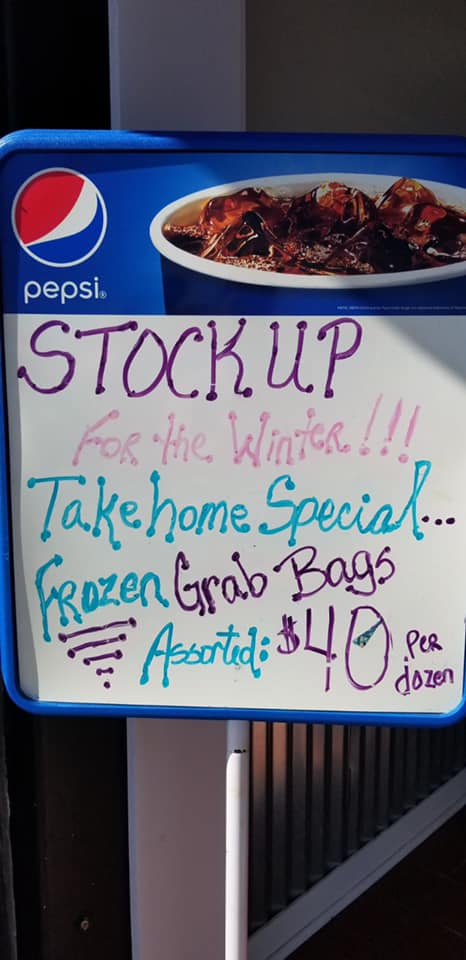 pepsi®
STOCK UP
FOR the Winter!!!
Take home Special...
FROZEN Grab Bags
Assorted: $40 PER dozen